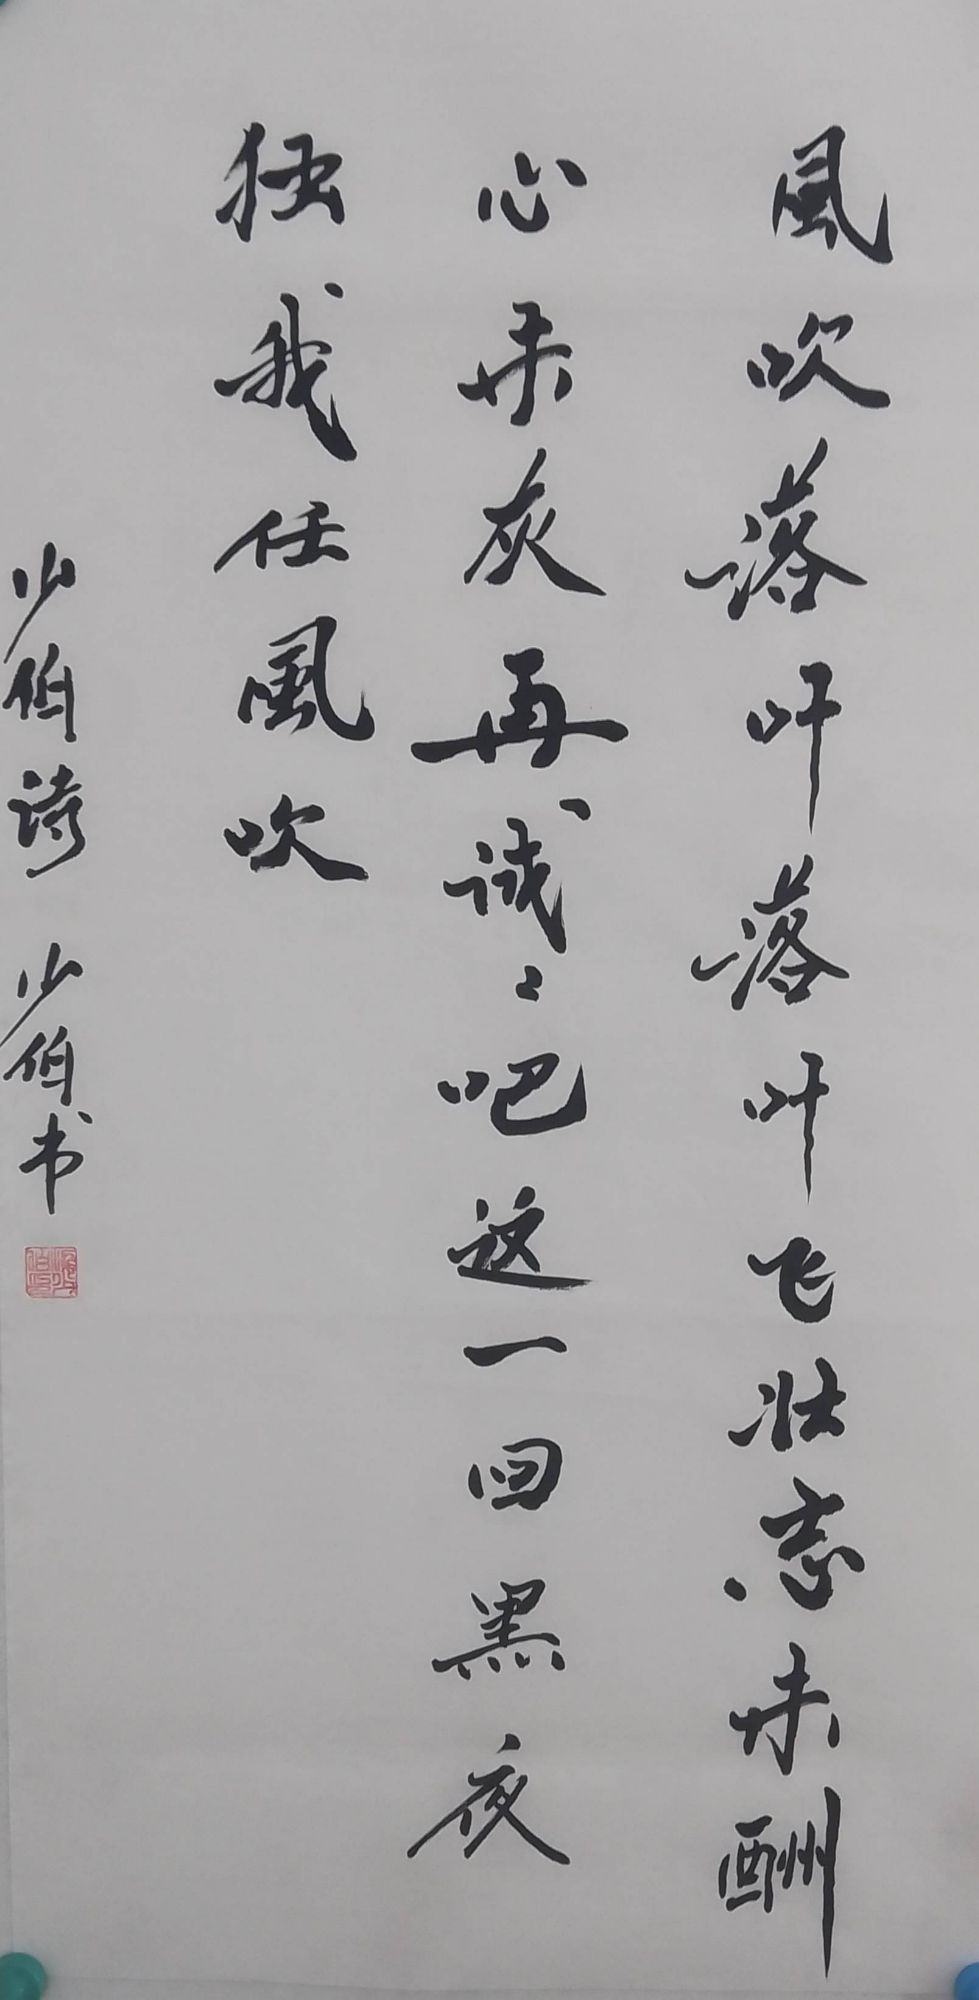 風吹落叶落叶飞壮志未酬
心未灰再诚〻吧这一回黑夜
独我任風吹
少伯诗 少伯书